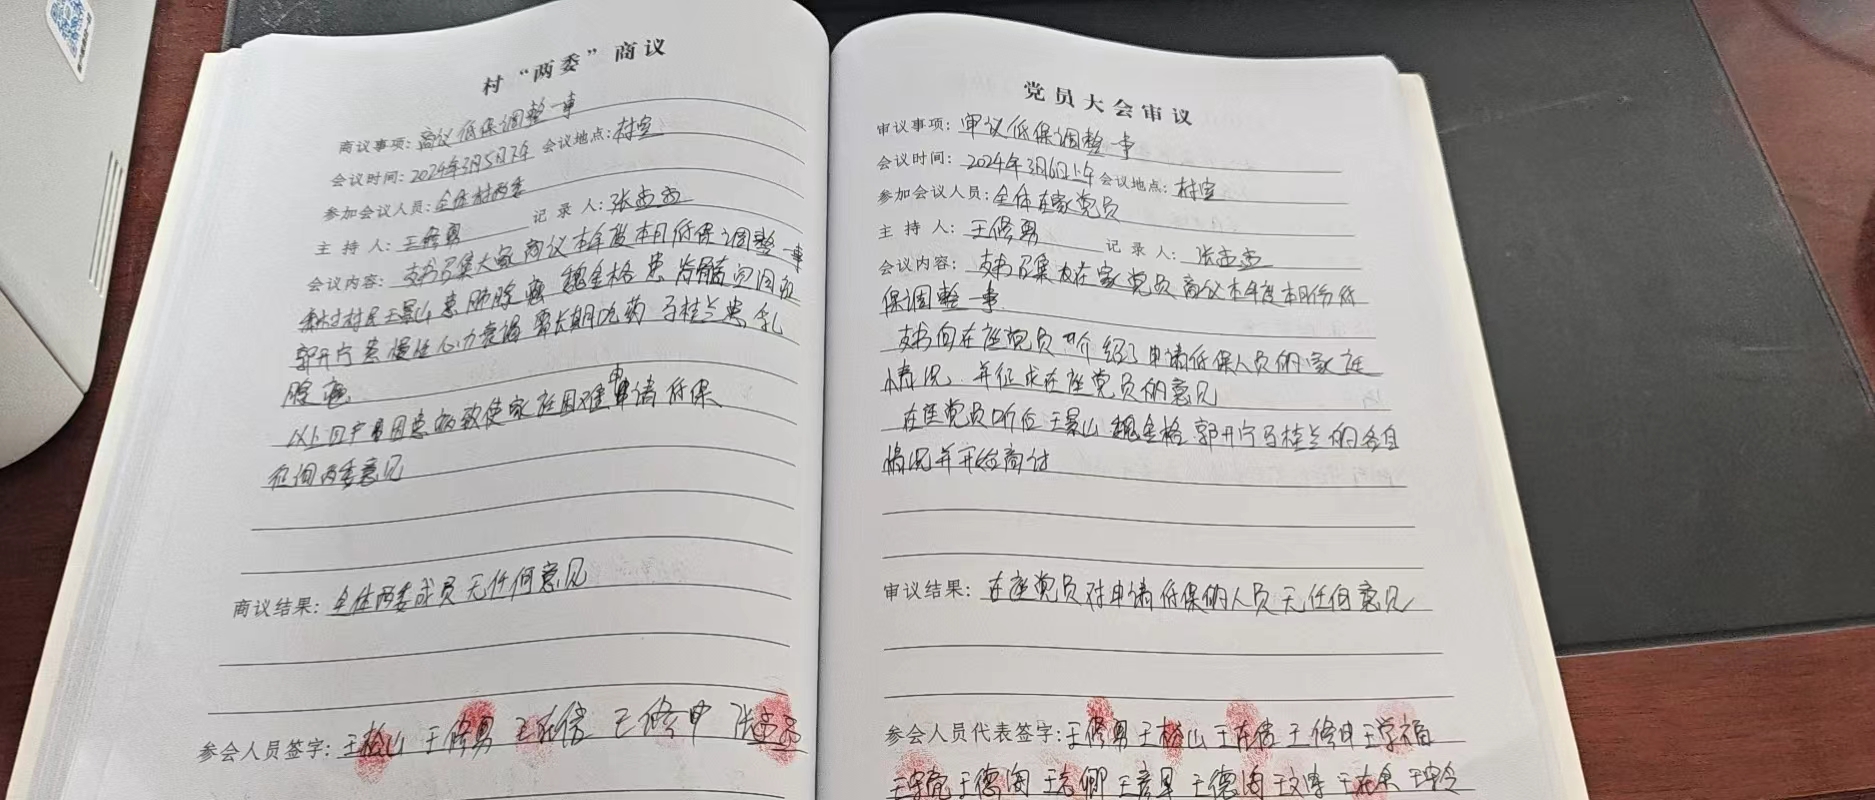 村“两委”商议
商议事项：商议低保调整一事
会议时间：2024年3月5日下午 会议地点：村室
参加会议人员：全体村两委
主持人：王修勇 记录人：张
会议内容：支书召集大家商议本年度本月低保调整一事
村民王景山患肺腺癌 魏金格患
郭开宁患慢性心力衰竭 需长期吃药 马桂兰患乳
腺癌
以上四户因患病致使家庭困难申请低保
征询两委意见
商议结果：全体两委成员无任何意见
参会人员签字：王松山 王修勇 王在信 王修申 张
党员大会审议
审议事项：审议低保调整一事
会议时间：2024年3月6日上午 会议地点：村室
参加会议人员：全体在家党员
主持人：王修勇 记录人：张
会议内容：支书召集在家党员商议本年度本月份低
保调整一事
支书向在座党员介绍了申请低保人员的家庭
情况，并征求在座党员的意见
在座党员听后王景山 魏金格 郭开宁 马桂兰的各自
情况并开始商讨
审议结果：在座党员对申请低保的人员无任何意见
参会人员代表签字：王修勇 王松山 王在信 王修申 王学福
王德 王 王 王德 王文 王在